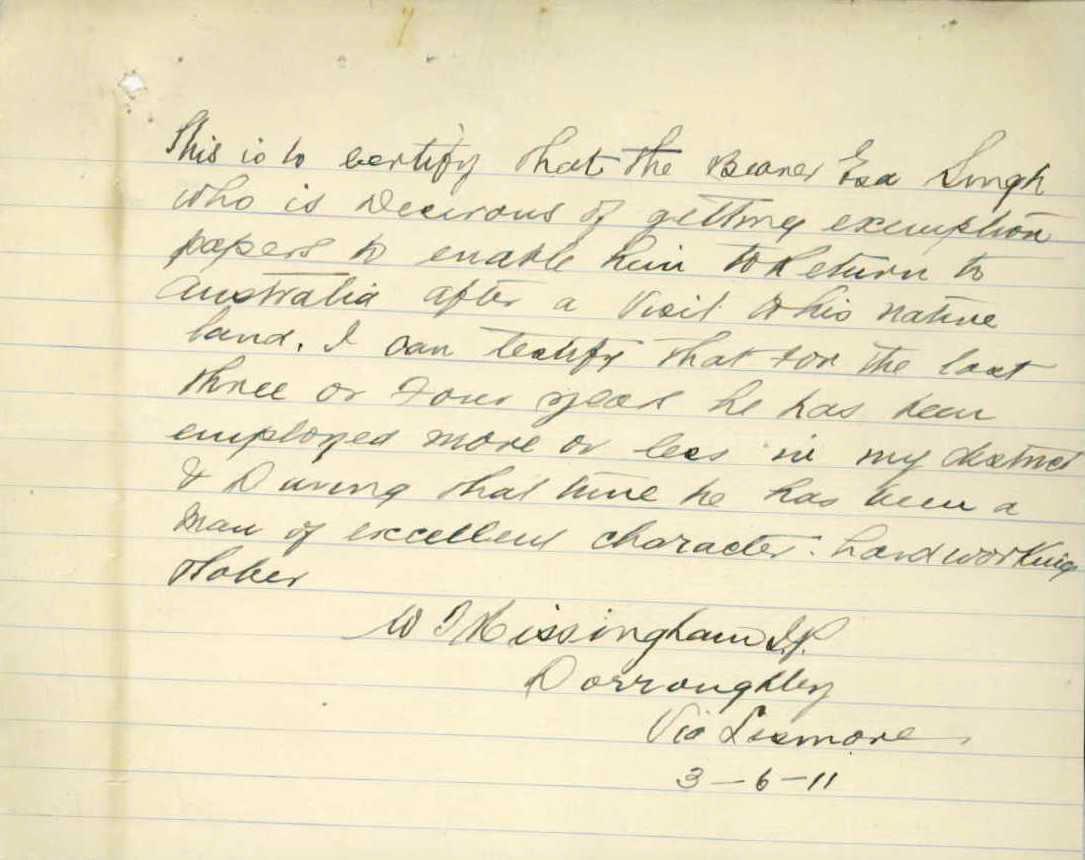 This is to certify that the Bearer Esa Singh
who is Decirous of getting exemption
papers to enable him to Return to
Australia after a Visit to his native
land. I can testify that for the last
three or Four years he has been
employed more or less in my district
& During that time he has been a
man of excellent character. hardworking
& Sober
W T Missingham J.P.
Dorroughby
Via Lismore
3-6-11